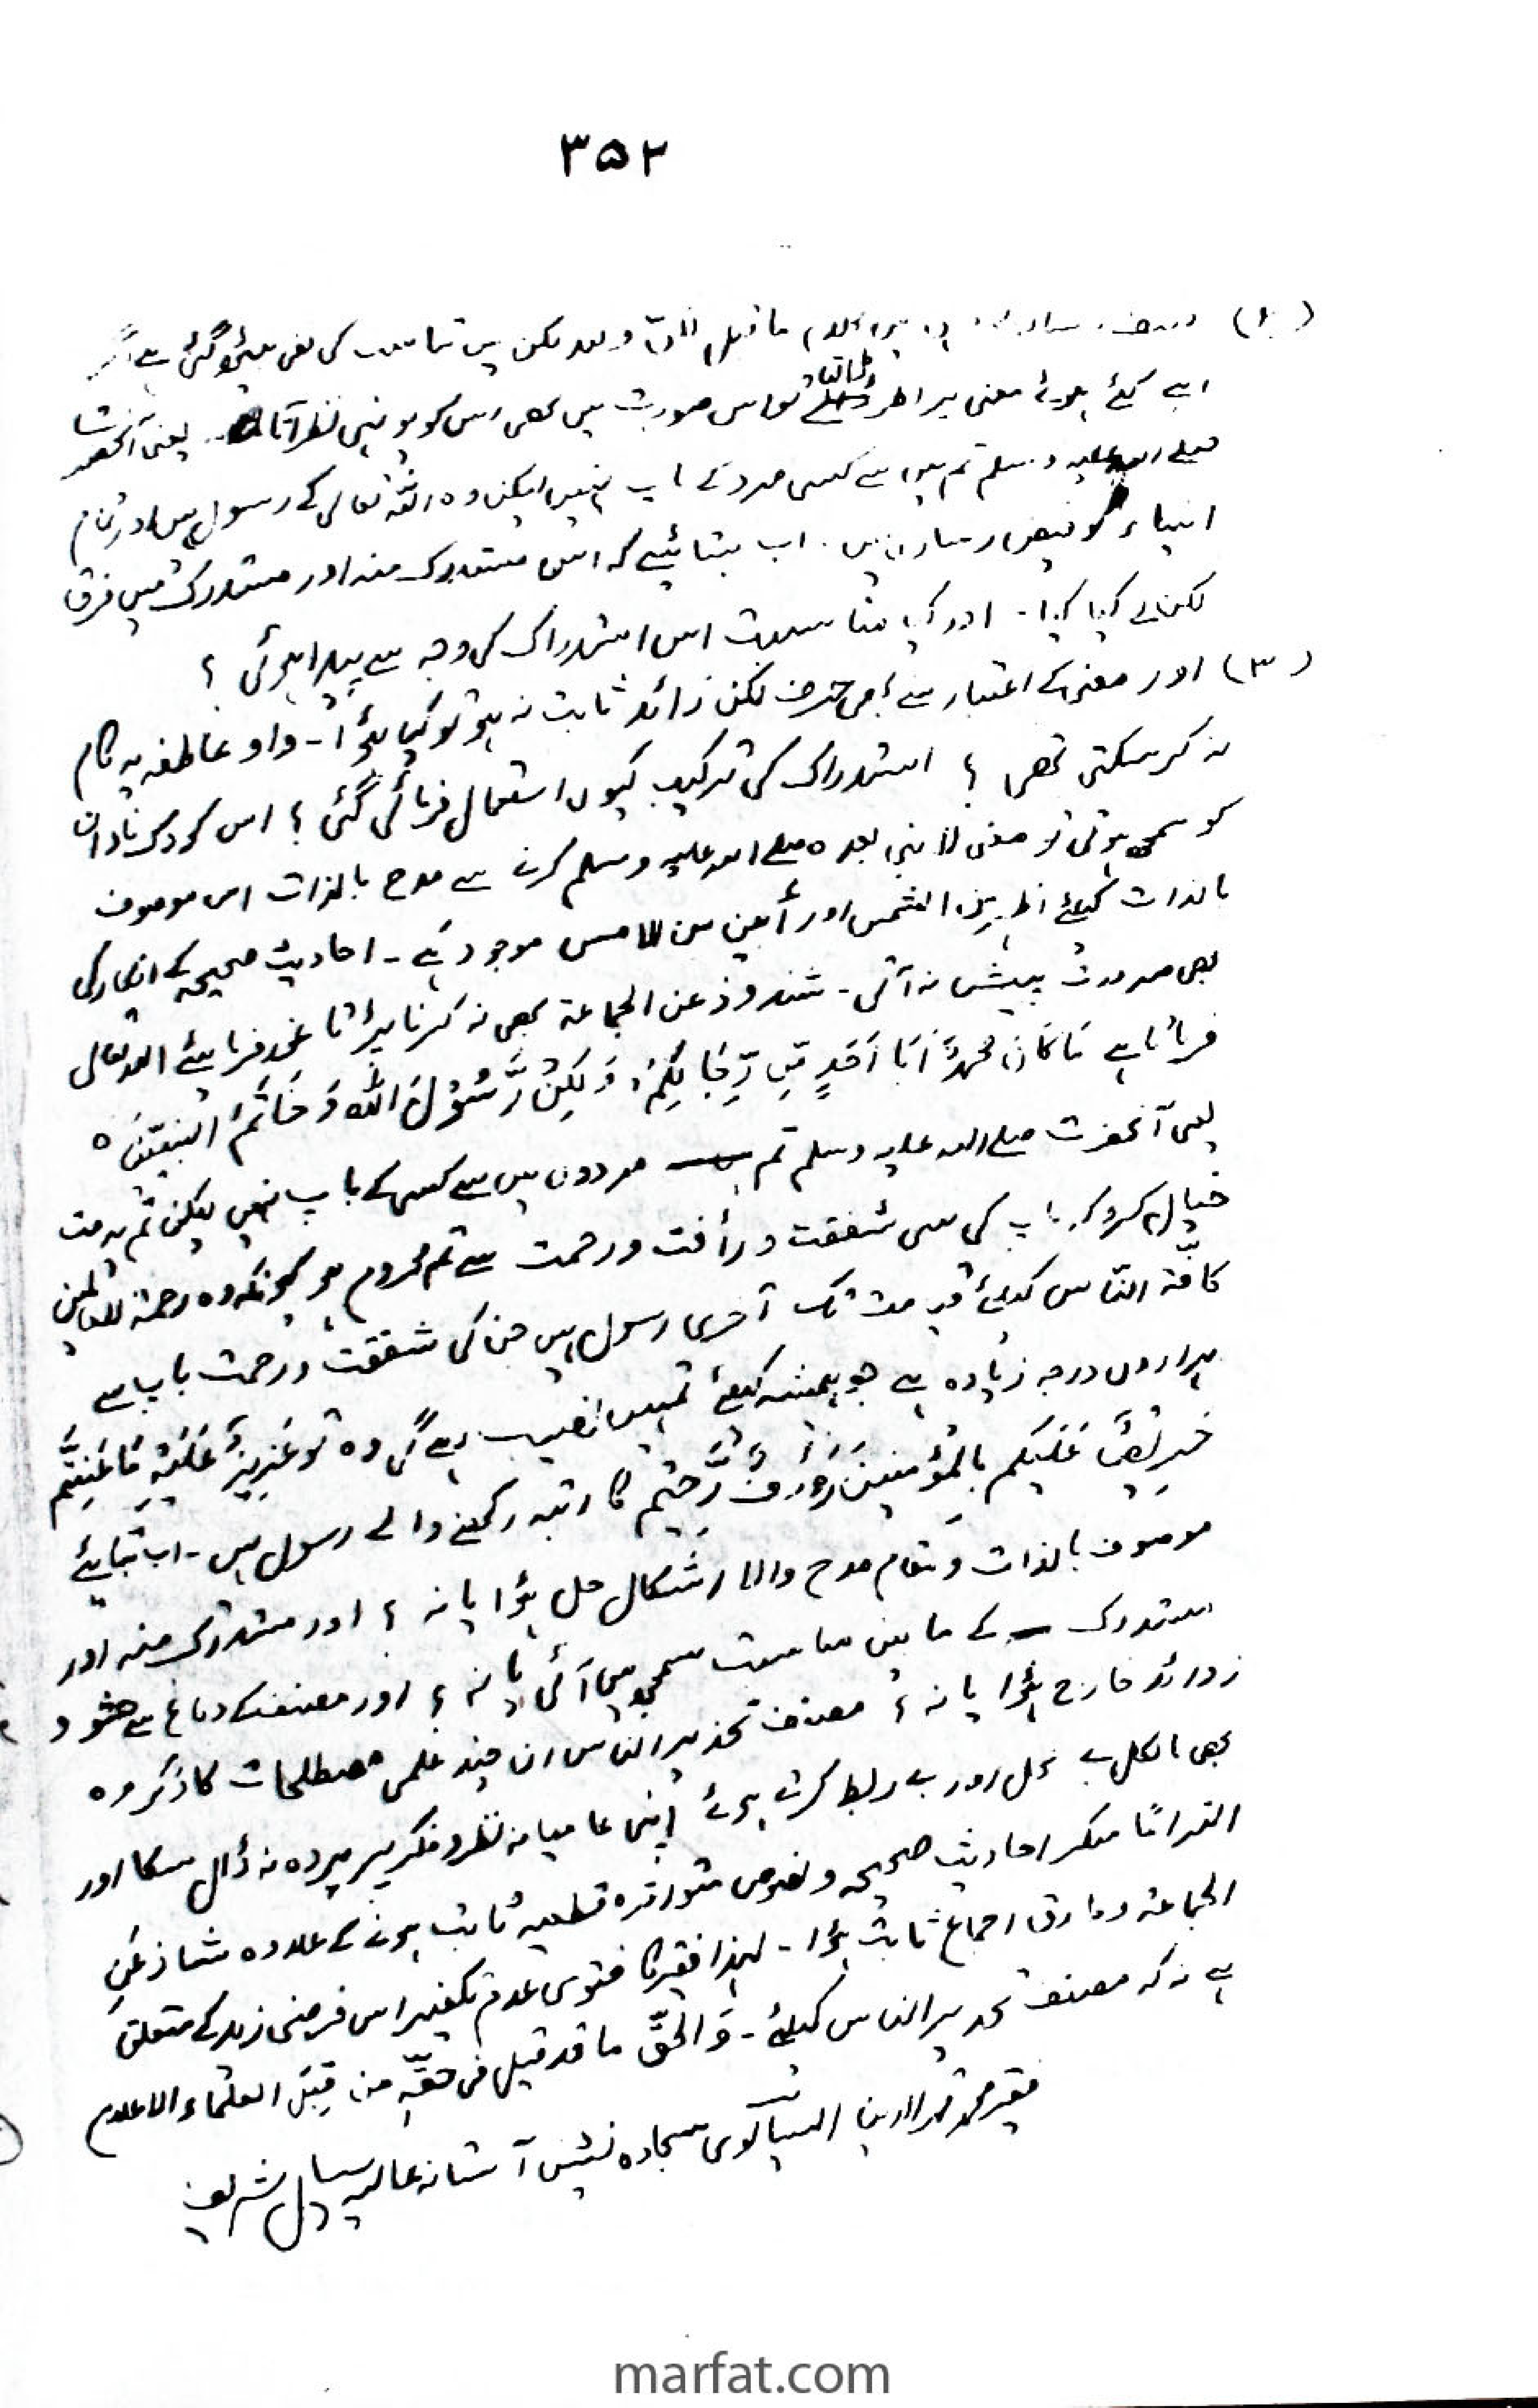 ۳۵۲
ما قبل لکن و بعد لکن میں تناسب کی نفی
اپنے کئے ہوئے معنی پر اگر تو اس صورت میں بھی اس کو یہ نہیں نظر آتا یعنی آنحضرت
صلے اللہ علیہ وسلم تم میں سے کسی مرد کے باپ نہیں لیکن وہ اللہ تعالی کے رسول ہیں اور تمام
انبیاء کو فیض رساں ہیں۔ اب بتائیے کہ اس مستدرک منہ اور مستدرک میں فرق
لکن نے کیا کیا۔ اور کیا مناسبت اس استدراک کی وجہ سے پیدا ہوئی ؟
(۳) اور معنی کے اعتبار سے بھی حرف لکن زائد ثابت نہ ہو تو کیا ہؤا۔ واو عاطفہ یہ کام
نہ کر سکتی تھی ؟ استدراک کی ترکیب کیوں استعمال فرمائی گئی ؟ اس کودک نادان
کو سمجھ ہوتی تو معنی لا نبی بعدہ صلے اللہ علیہ وسلم کرنے سے مدح بالذات اس موصوف
بالذات کیلئے اظہر من الشمس اور أبین من الامس موجود ہے۔ احادیث صحیحہ کے انکار کی
بھی ضرورت پیش نہ آتی۔ شذوذ عن الجماعۃ بھی نہ کرنا پڑتا غور فرمایئے اللہ تعالی
فرماتا ہے مَا كَانَ مُحَمَّدٌ اَبَا اَحَدٍ مِّن رِّجَالِكُمْ وَلٰكِنْ رَّسُوْلَ اللهِ وَخَاتَمَ النَّبِيّٖنَ ہ
یعنی آنحضرت صلے اللہ علیہ وسلم تم مردوں میں سے کسی کے باپ نہیں لیکن تم یہ مت
خیال کرو کہ باپ کی سی شفقت و رأفت و رحمت سے تم محروم ہو کیونکہ وہ رحمۃ للعالمین
کافّۃ النّاس کیلئے قیامت تک آخری رسول ہیں جن کی شفقت و رحمت باپ سے
ہزاروں درجہ زیادہ ہے جو ہمیشہ کیلئے تمہیں نصیب رہے گی وہ تو عَزِيْزٌ عَلَيْهِ مَا عَنِتُّمْ
حَرِيْصٌ عَلَيْكُم بِالْمُؤْمِنِيْنَ رَءُوْفٌ رَّحِيْم کا رتبہ رکھنے والے رسول ہیں۔ اب بتایئے
موصوف بالذات و مقام مدح والا اشکال حل ہؤا یا نہ ؟ اور مستدرک منہ اور
مستدرک کے مابین مناسبت سمجھ میں آئی یا نہ ؟ اور مصنف کے دماغ سے حشو و
زوائد خارج ہؤا یا نہ ؟ مصنف تحذیر الناس ان چند علمی مصطلحات کا ذکر وہ
بھی بالکل بے محل اور بے ربط کرتے ہوئے اپنی عامیانہ نظر و فکر پر پردہ نہ ڈال سکا اور
التزاماً منکر احادیث صحیحہ و نصوص متواترہ قطعیہ ثابت ہونے کے علاوہ شاذ عن
الجماعۃ و خارق اجماع ثابت ہؤا۔ لہذا فقیر کا فتوی عدم تکفیر اس فرضی زید کے متعلق
ہے نہ کہ مصنف تحذیر الناس کیلئے۔ وَالحقّ ما قد قیل فی حقّہٖ من قِبَل العلماء الاعلام
فقیر محمد قمر الدین السیالوی سجادہ نشین آستانہ عالیہ سیال شریف
marfat.com